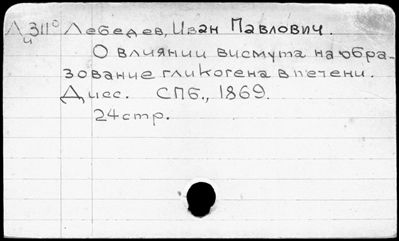 Л 311° Лебедев, Иван Павлович.
и
О влиянии висмута на обра-
зование гликогена в печени.
Дисс. СПб., 1869.
24 стр.